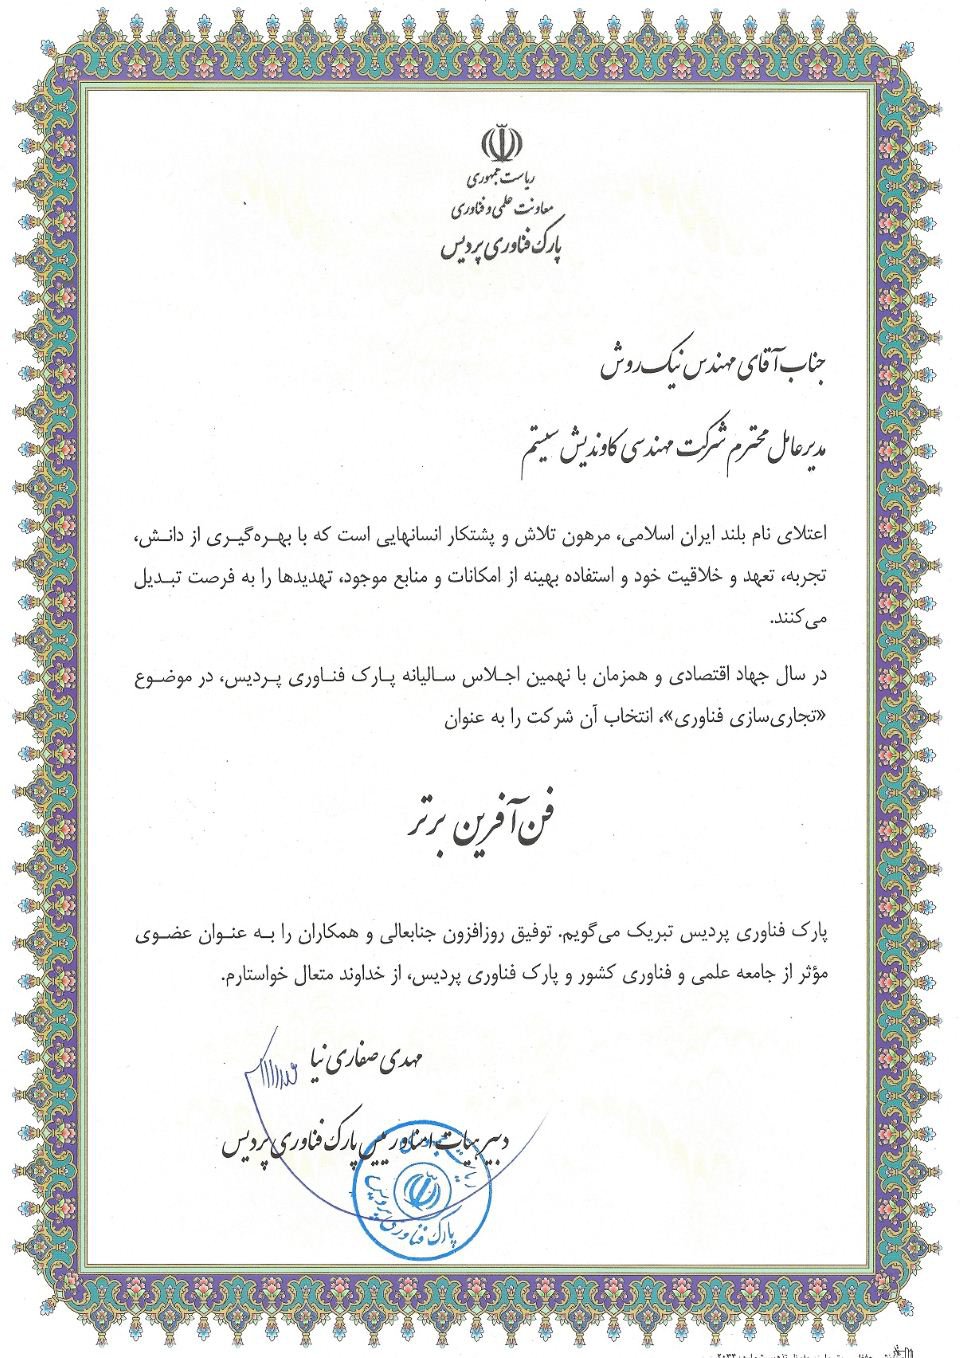 ریاست جمهوری
معاونت علمی و فناوری
پارک فناوری پردیس
جناب آقای مهندس نیک روش
مدیرعامل محترم شرکت مهندسی کاوندیش سیستم
اعتلای نام بلند ایران اسلامی، مرهون تلاش و پشتکار انسانهایی است که با بهره‌گیری از دانش،
تجربه، تعهد و خلاقیت خود و استفاده بهینه از امکانات و منابع موجود، تهدیدها را به فرصت تبدیل
می‌کنند.
در سال جهاد اقتصادی و همزمان با نهمین اجلاس سالیانه پارک فناوری پردیس، در موضوع
«تجاری‌سازی فناوری»، انتخاب آن شرکت را به عنوان
فن آفرین برتر
پارک فناوری پردیس تبریک می‌گویم. توفیق روزافزون جنابعالی و همکاران را به عنوان عضوی
مؤثر از جامعه علمی و فناوری کشور و پارک فناوری پردیس، از خداوند متعال خواستارم.
مهدی صفاری نیا
دبیر هیات امنا و رییس پارک فناوری پردیس
ریاست جمهوری
پارک فناوری پردیس